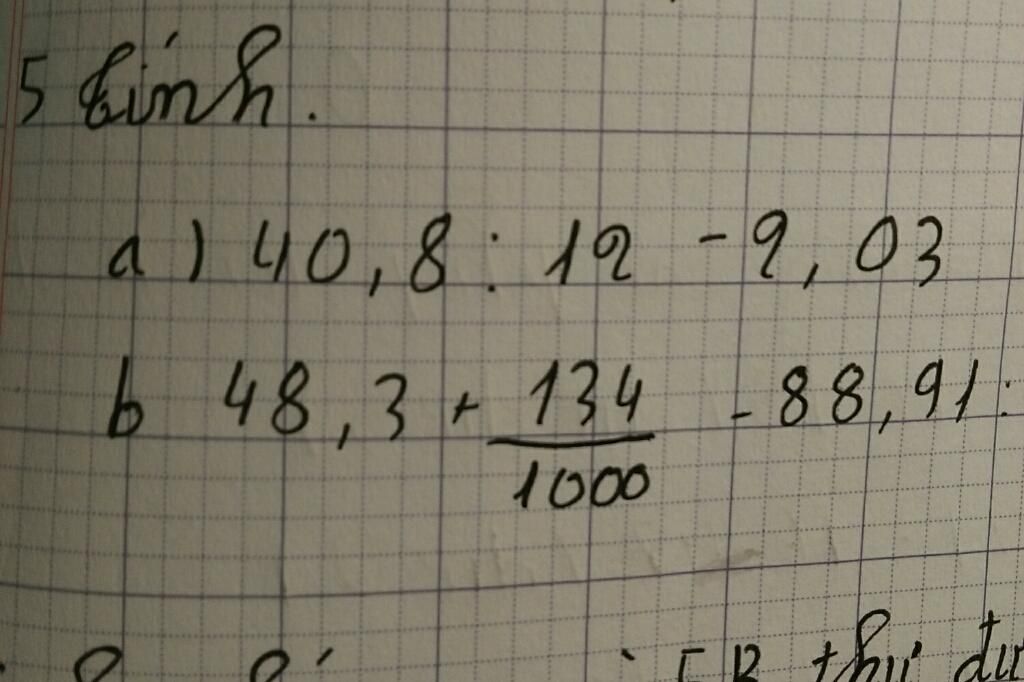 5 tính.
a) 40,8 : 12 - 2,03
b 48,3 + 134/1000 - 88,91 :
thứ